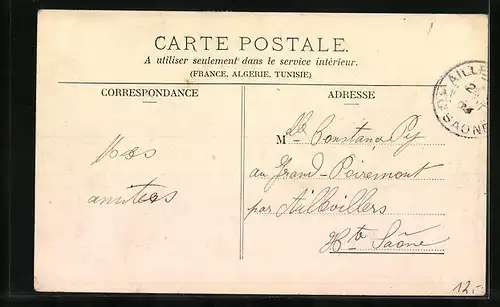 CARTE POSTALE.
A utiliser seulement dans le service intérieur.
(FRANCE, ALGERIE, TUNISIE)
CORRESPONDANCE
ADRESSE
Mes
amities
Mlle Constance Py
au Grand-Poiremont
par Aillevillers
Hte Saône
AILLE
SAONE
12.-